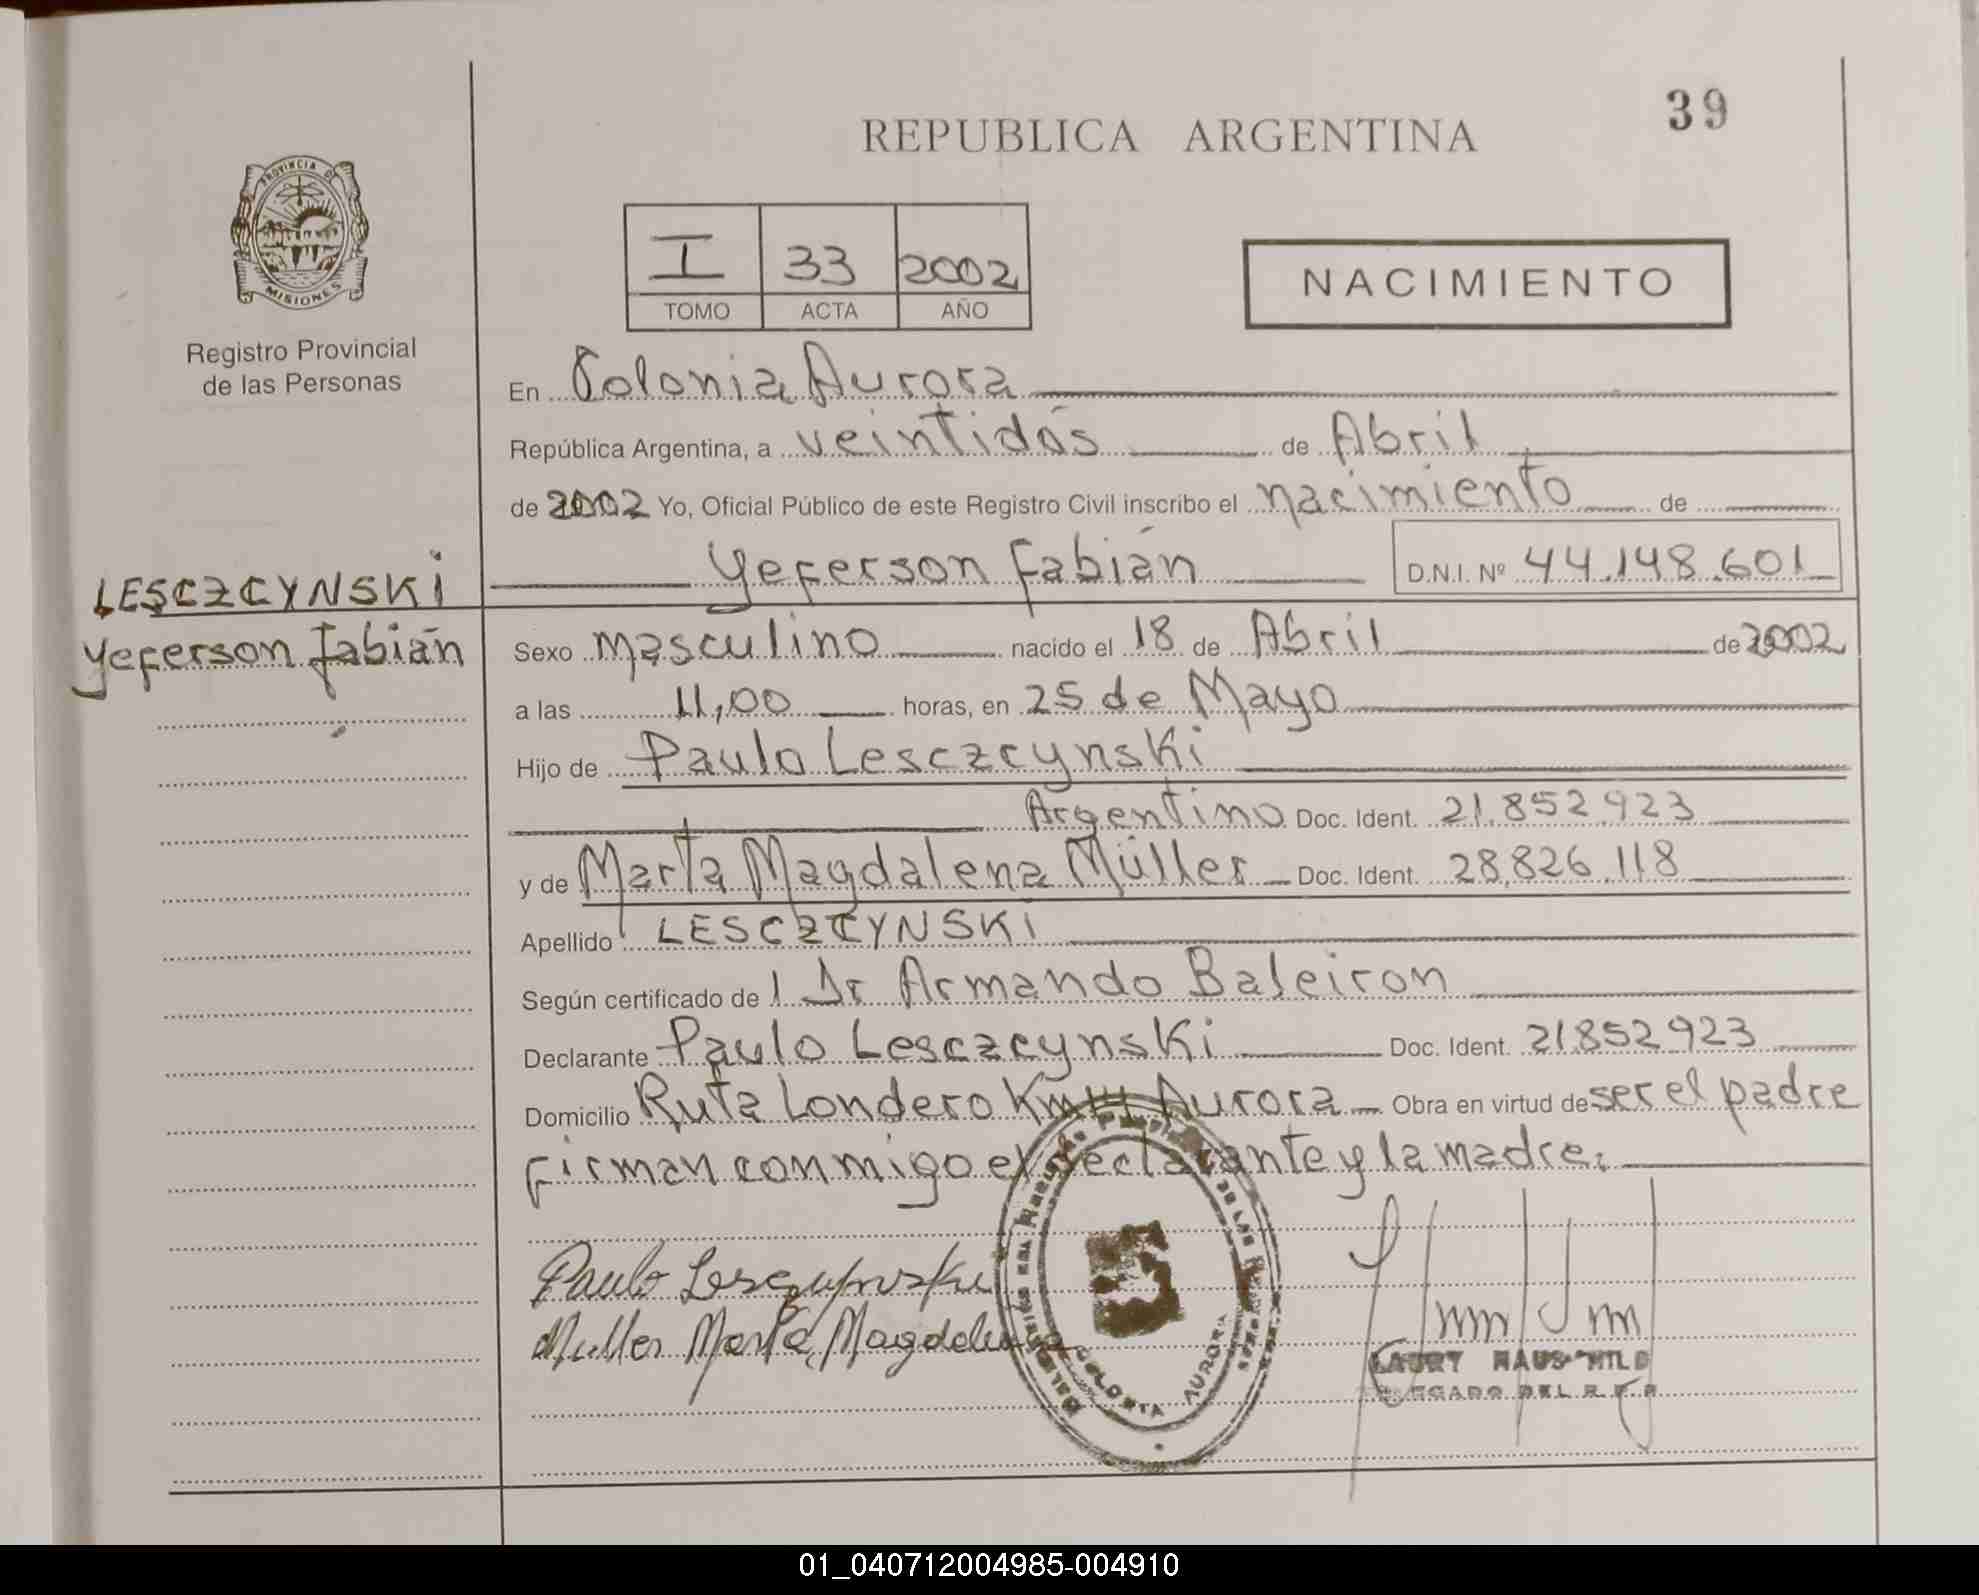 39
REPUBLICA ARGENTINA
PROVINCIA DE
MISIONES
Registro Provincial
de las Personas
I 33 2002
TOMO ACTA AÑO
NACIMIENTO
En Colonia Aurora
República Argentina, a veintidós de Abril
de 2002 Yo, Oficial Público de este Registro Civil inscribo el nacimiento de
Yeferson Fabián D.N.I. Nº 44.148.601
LESCZCYNSKI
Yeferson Fabián
Sexo masculino nacido el 18 de Abril de 2002
a las 11,00 horas, en 25 de Mayo
Hijo de Paulo Lesczcynski
Argentino Doc. Ident. 21.852.923
y de Marta Magdalena Müller Doc. Ident. 28.826.118
Apellido LESCZCYNSKI
Según certificado de l Dr Armando Baleiron
Declarante Paulo Lesczcynski Doc. Ident. 21.852.923
Domicilio Ruta Londero Km Aurora Obra en virtud de ser el padre
firman conmigo el declarante y la madre.
Paulo
Muller Marta Magdalena
COLONIA AURORA
DELEGADO DEL R.P.P
01_040712004985-004910